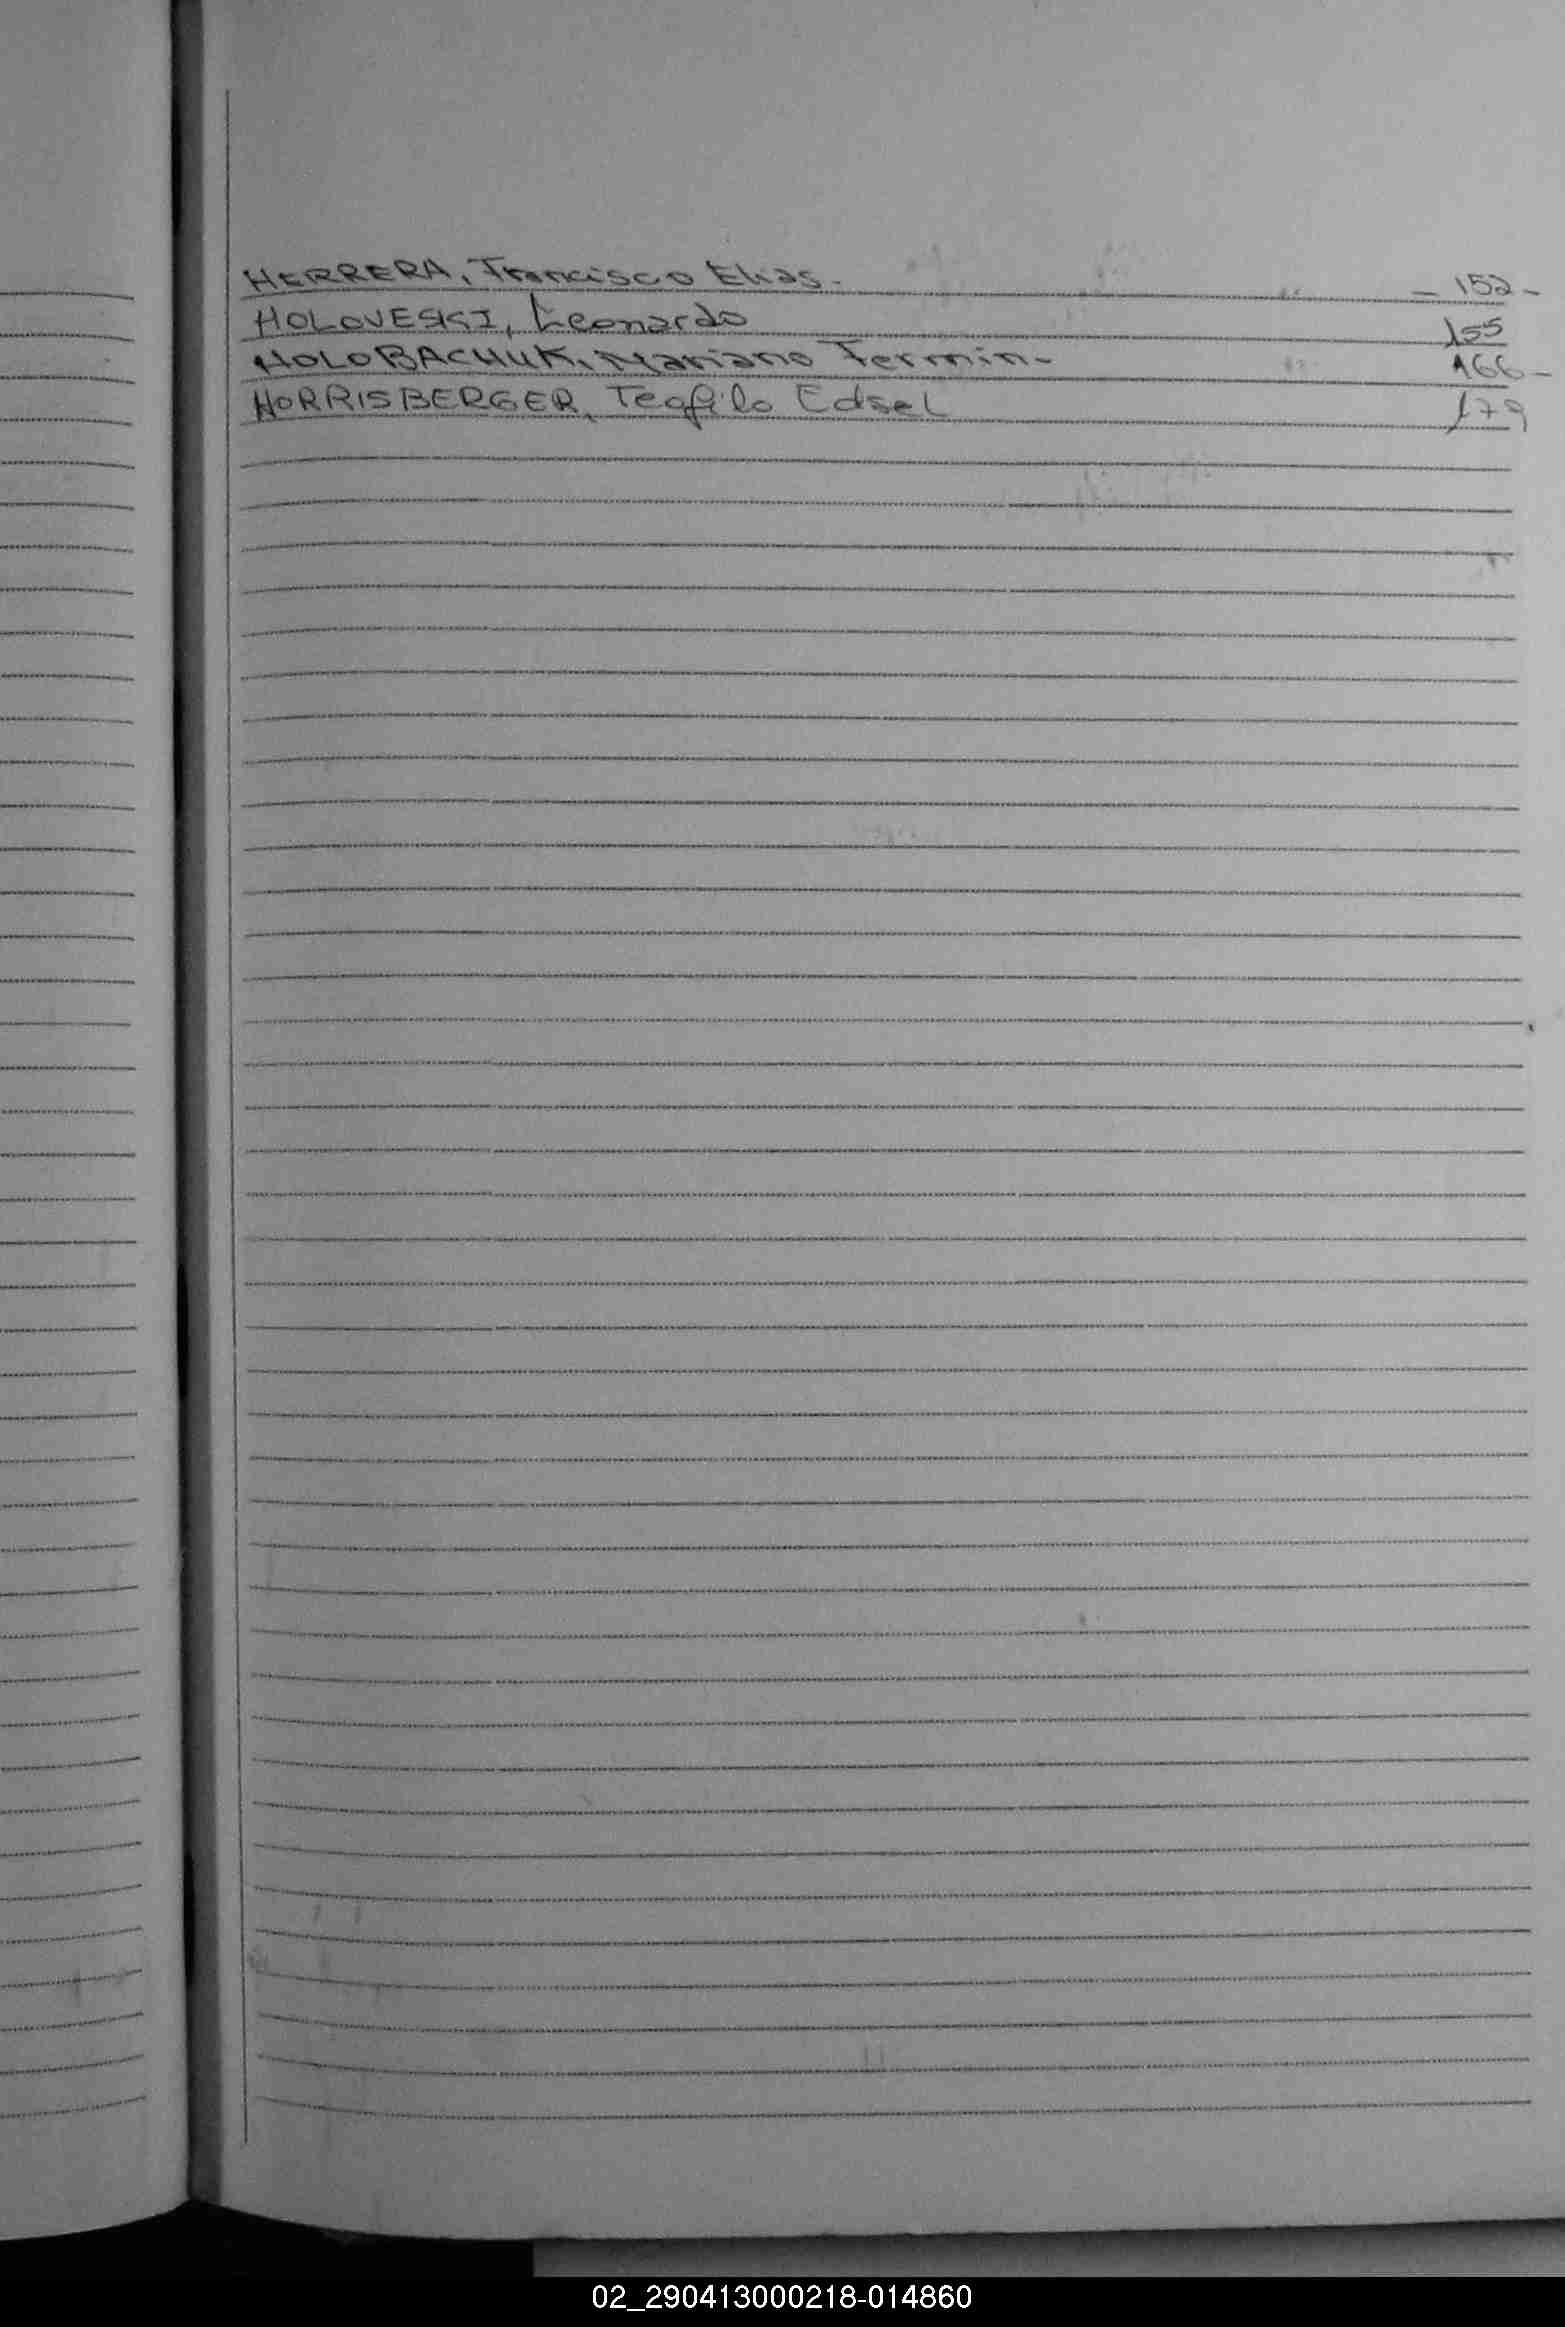 HERRERA, Francisco Elias. - 152 -
Leonardo 155
HOLOBACHUK, Mariano Fermin. 166 -
HORRISBERGER, Teofilo Edsel 179
02_290413000218-014860